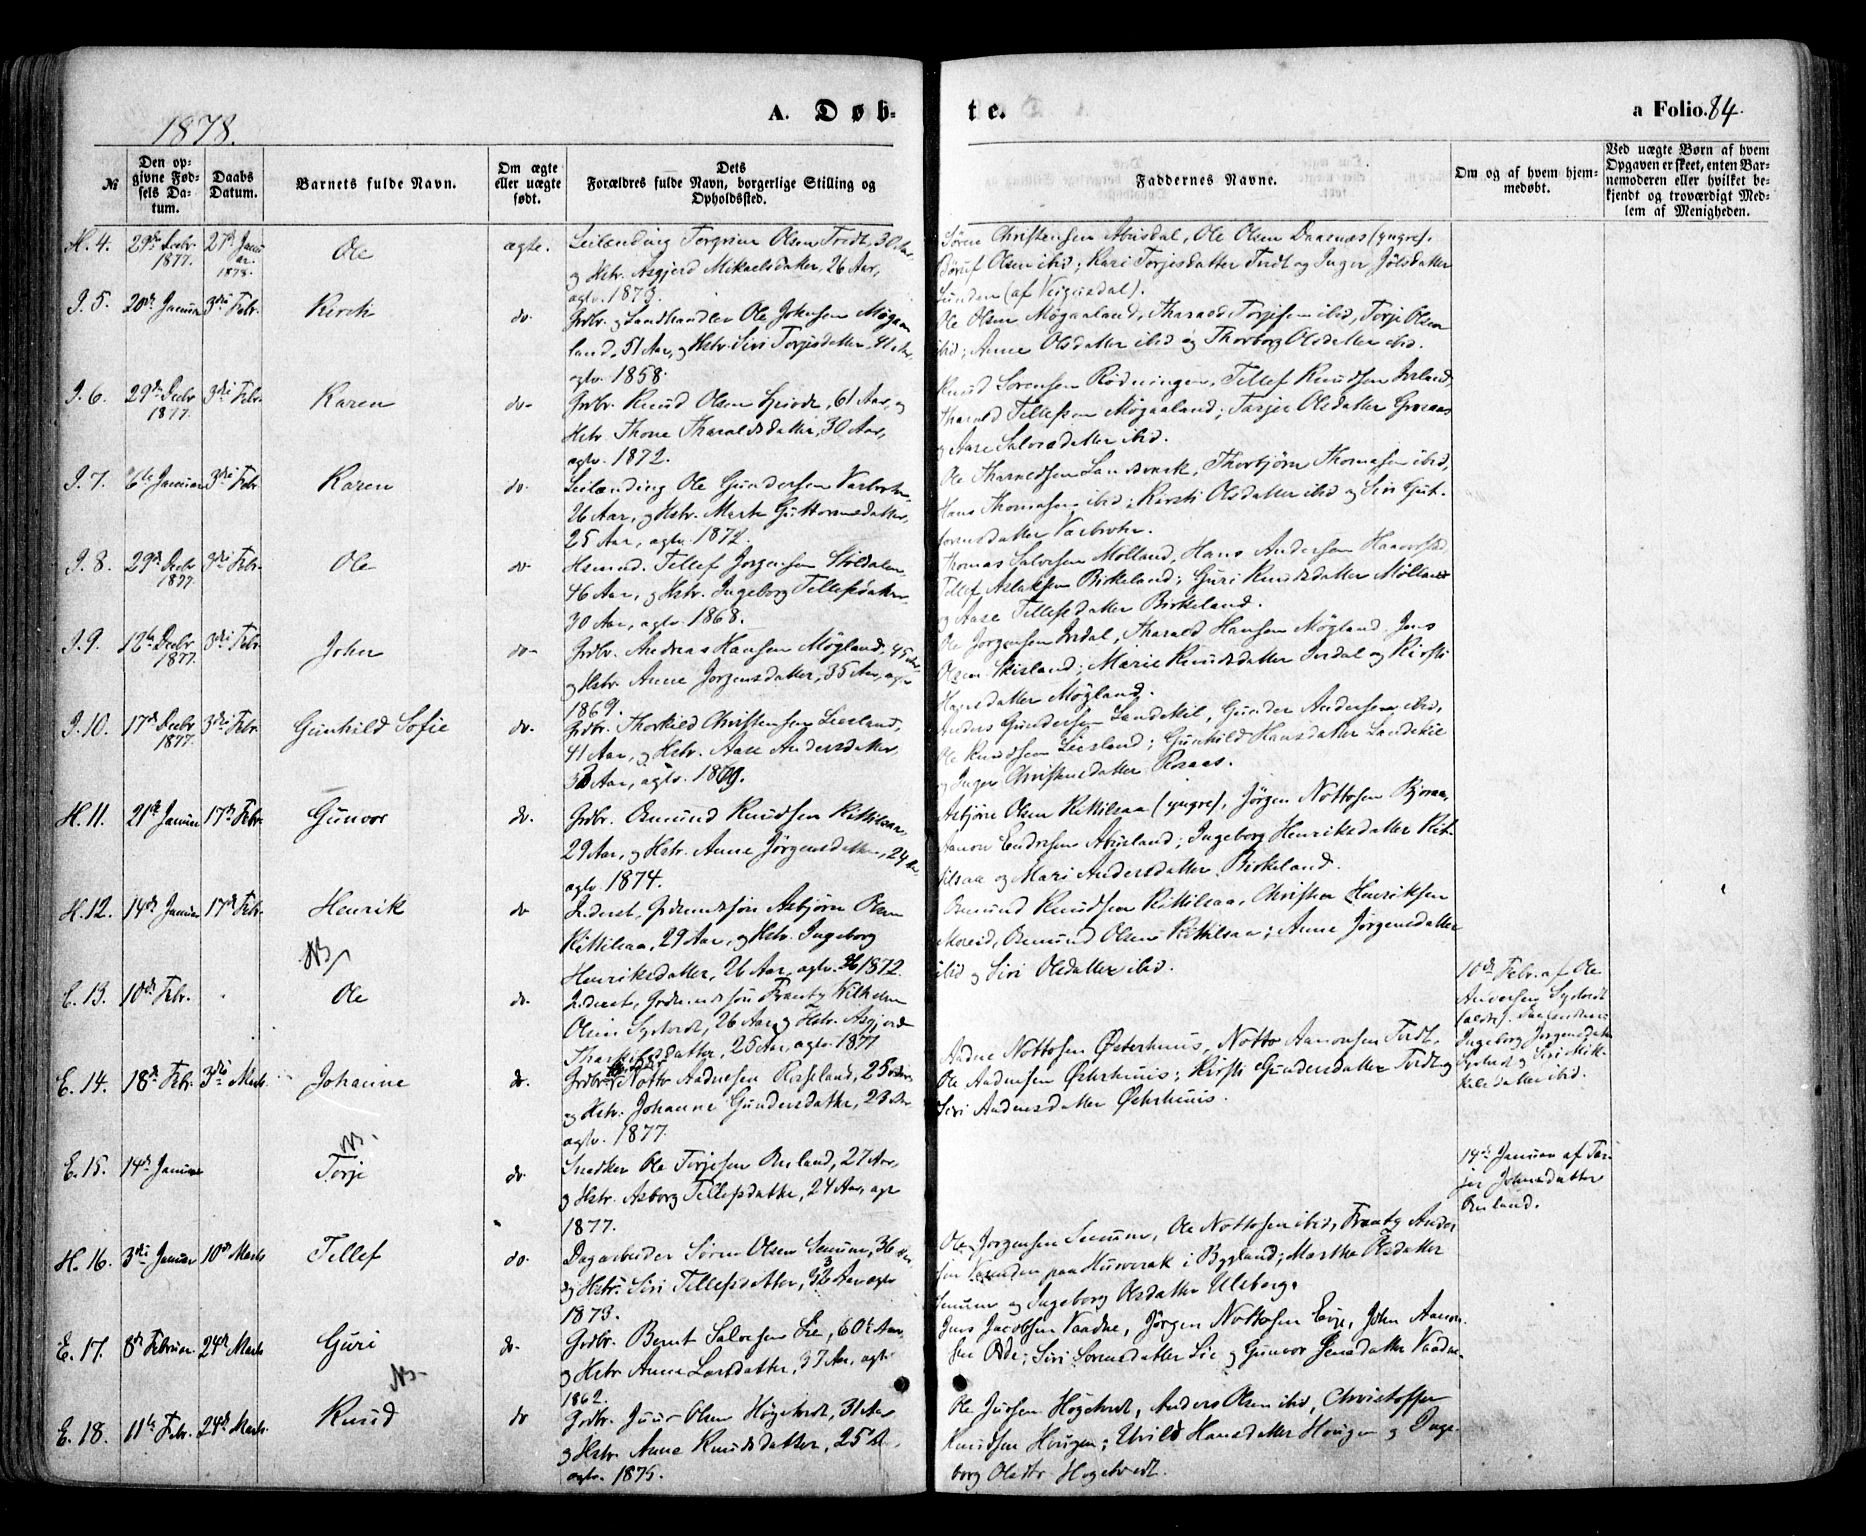 1878.
A. Døb-
te.
a Folio. 84.
№
Den op-
givne Fød-
sels Da-
tum.
Daabs
Datum.
Barnets fulde Navn.
Om ægte
eller uægte
født.
Dets
Forældres fulde Navn, borgerlige Stilling og
Opholdssted.
Faddernes Navne.
Om og af hvem hjem-
medøbt.
Ved uægte Børn af hvem
Opgaven er skeet, enten Bar-
nemoderen eller hvilket be-
kjendt og troværdigt Med-
lem af Menigheden.
H. 4. 29de Decbr 1877. 27de Januar 1878. Ole ægte.
Leilænding Torgrim Olsen Tvedt, 30 Aar,
og Hstr. Asgjerd Mikaelsdatter, 26 Aar,
agtv. 1873.
Søren Christensen Abusdal, Ole Olsen Daasnæs (yngre),
Olsen ibid; Kari Torjesdatter Tvedt og Inger Joelsdatter
Sunden (af Veigusdal).
I. 5. 20de Januar 3die Febr. Kirsti do.
Grdbr. og Landhandler Ole Johnsen Møgaa-
land, 51 Aar, og Hstr. Siri Torjesdatter, 41 Aar,
agtv. 1858.
Ole Olsen Møgaaland, Tharald Torjesen ibid, Torje Olsen
ibid; Anne Olsdatter ibid og Thorborg Olsdatter ibid.
I. 6. 29de Decbr 1877. 3die Febr. Karen do.
Grdbr. Knud Olsen 61 Aar, og
Hstr. Thone Tharaldsdatter, 30 Aar,
agtv. 1872.
Knud Sørensen Rødningen, Tellef Knudsen Iveland,
Tharald Tellefsen Møgaaland; Tarjer Olsdatter
og Aase Salvesdatter ibid.
I. 7. 6te Januar 3die Febr Karen do.
Leilænding Ole Gundersen
26 Aar, og Hstr. Marte Guttormsdatter,
25 Aar, agtv. 1872.
Ole Tharaldsen Landsverk, Thorbjørn Thomasen ibid,
Hans Thomasen ibid; Kirsti Olsdatter ibid og Siri Gut-
tormsdatter
I. 8. 29de Decbr 1877. 3die Febr. Ole do
Husmd. Tellef Jørgensen
46 Aar, og Hstr. Ingeborg Tellefsdatter,
30 Aar, agtv. 1868.
Thomas Salvesen Mølland, Hans Andersen
Tellef Aslaksen Birkeland; Guri Knudsdatter Mølland
og Aase Tellefsdatter Birkeland.
I. 9. 12te Decbr 1877. 3die Febr. John do
Grdbr. Andreas Hansen Møgland, 45 Aar,
og Hstr. Anne Jørgensdatter, 35 Aar, agtv
1869.
Ole Jørgensen Ivedal, Tharald Hansen Møgland, Jens
Olsen Skisland; Marie Knudsdatter Ivedal og Kirsti
Hansdatter Møgland.
I. 10. 17de Decbr 1877. 3die Febr. Gunhild Sofie do.
Grdbr. Thorkild Christensen Liesland,
41 Aar, og Hstr. Aase Andersdatter,
Aar, agtv. 1869.
Anders Gundersen Landekil, Gunder Andersen ibid,
Ole Knudsen Liesland; Gunhild Hansdatter Landekil
og Inger Christensdatter Rosaas.
H. 11. 21de Januar 17de Febr. Gunvor do.
Grdbr. Osmund Knudsen Kittilsaa,
29 Aar, og Hstr. Anne Jørgensdatter, 24 Aar,
agtv. 1874.
Asbjørn Olsen Kittilsaa (yngre), Jørgen Nottosen Bjoraa,
Aanon Endresen Abusland; Ingeborg Henriksdatter Kit-
tilsaa og Mari Andersdatter Birkeland.
H. 12. 14de Januar 17de Febr. Henrik do
Inderst, Grdmandssøn Asbjørn Olsen
Kittilsaa, 29 Aar, og Hstr. Ingeborg
Henriksdatter, 26 Aar, agtv. 1872.
Osmund Knudsen Kittilsaa, Christen Henriksen
Osmund Olsen Kittilsaa; Anne Jørgensdatter
ibid og Siri Olsdatter ibid.
NB
E. 13. 10de Febr. Ole do.
Inderst, Grdmandssøn Frantz Wilhelm
Olsen Syrtveit, 26 Aar og Hstr. Asgjerd
Tharaldsdatter, 25 Aar, agtv. 1877
10de Febr. af Ole
Andersen Syrtveit
Ingeborg Jørgensdatter
Syrtveit og Siri Mik-
kelsdatter ibid.
E. 14. 18de Febr. 3die Marts Johanne do.
Grdbr. Notto Aadnesen Rosseland, 25 Aar
og Hstr. Johanne Gundersdatter, 23 Aar
agtv. 1877.
Aadne Nottosen Østerhuus, Notto Aanonsen Tvedt,
Ole Aadnesen Østerhuus; Kirsti Gundersdatter Tvedt og
Siri Aadnesdatter Østerhuus.
NB.
E. 15. 14de Januar Torje do.
Snedker Ole Torjesen Omland, 27 Aar,
og Hstr. Asborg Tellefsdatter, 24 Aar, agtv
1877.
14de Januar af Tar-
jer Johnsdatter
Omland.
H. 16. 3die Januar 10de Marts Tellef do.
Dagarbeider Søren Olsen Senum, 36 Aar,
og Hstr. Siri Tellefsdatter, Aar agtv
1873.
Ole Jørgensen Senum, Ole Nottosen ibid, Frantz Ander-
sen paa i Bygland; Marthe Olsdatter
Senum og Ingeborg Olsdatter Uleberg.
E. 17. 8de Februar. 24de Marts Guri do.
Grdbr. Bernt Salvesen Lie, 60 Aar,
og Hstr Anne Larsdatter, 37 Aar, agtv
1862.
Jens Jacobsen Vaadne, Jørgen Nottosen Evje, John Aanon-
sen Odde; Siri Sørensdatter Lie og Gunvor Jensdatter Vaadne.
NB.
E. 18. 11te Febr. 24de Marts. Knud do
Grdbr. Juur Olsen Høgetvedt, 31 Aar
og Hstr. Anne Knudsdatter, 25 Aar,
agtv. 1875.
Ole Jursen Høgetvedt, Anders Olsen ibid, Christoffer
Knudsen Hougen; Hansdatter Hougen og Dage-
borg Olsdtr. Høgetvedt.